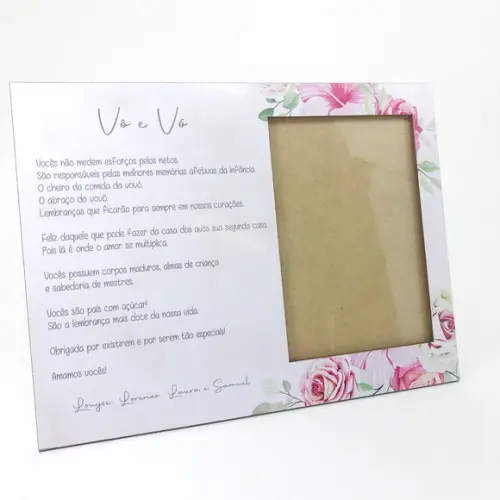 Vô e Vó
Vocês não medem esforços pelos netos.
São responsáveis pelas melhores memórias afetivas da infância.
O cheiro da comida da vovó.
O abraço do vovô.
Lembranças que ficarão para sempre em nossos corações.
Feliz daquele que pode fazer da casa dos avós sua segunda casa.
Pois lá é onde o amor se multiplica.
Vocês possuem corpos maduros, almas de criança
e sabedoria de mestres.
Vocês são pais com açúcar!
São a lembrança mais doce da nossa vida.
Obrigada por existirem e por serem tão especiais!
Amamos vocês!
Louyse, Lorenzo Laura e Samuel